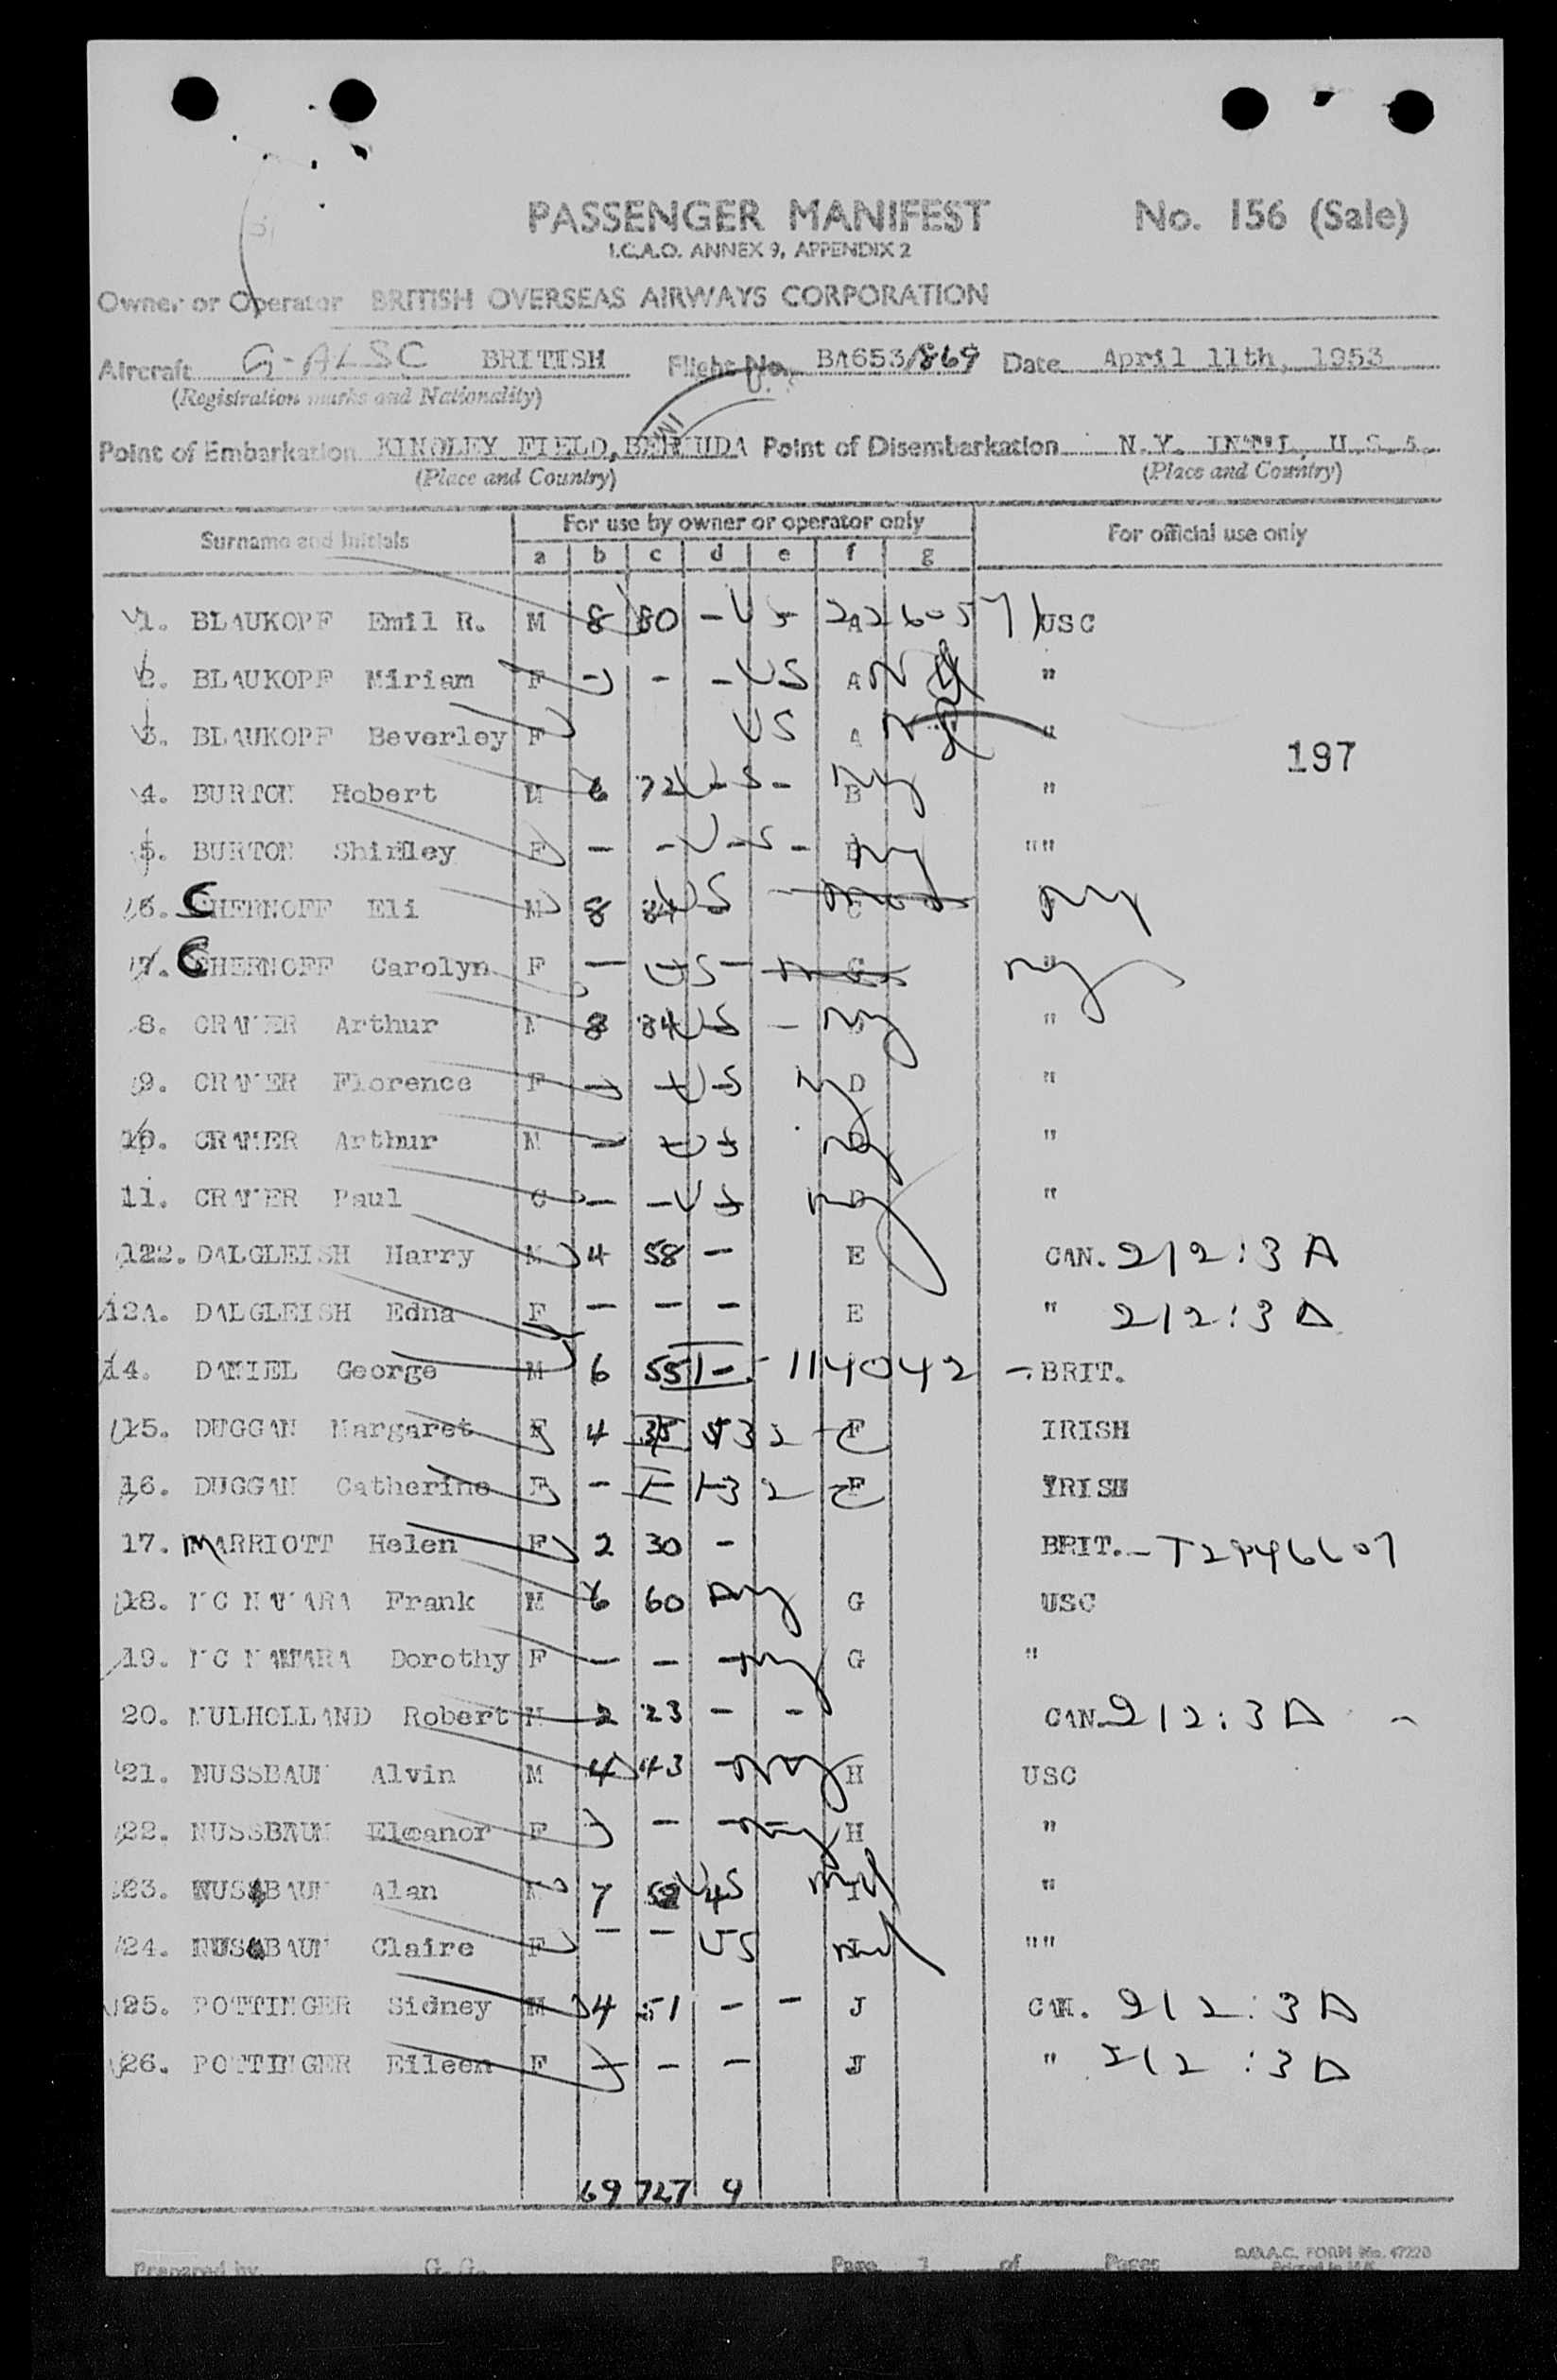 PASSENGER MANIFEST No. 156 (Sale)
I.C.A.O. ANNEX 9, APPENDIX 2
Owner or Operator BRITISH OVERSEAS AIRWAYS CORPORATION
Aircraft G-ALSC BRITISH Flight No. BA653/869 Date April 11th, 1953
(Registration marks and Nationality)
Point of Embarkation KINDLEY FIELD, BERMUDA Point of Disembarkation N.Y. INT'L, U.S.A.
(Place and Country) (Place and Country)
Surname and Initials For use by owner or operator only For official use only
a b c d e f g
1. BLAUKOPF Emil R. M 8 80 - US - A 2426057 USC
2. BLAUKOPF Miriam F - - - US A NY "
3. BLAUKOPF Beverley F US A NY "
197
4. BURTON Robert M 6 72 US - B NY "
5. BURTON Shirlley F - - US - NY ""
6. CHERNOFF Eli M 8 84 US - C NY
7. CHERNOFF Carolyn F - US - C NY "
8. CRAMER Arthur M 8 84 US - NY "
9. CRAMER Florence F - - US NY D "
10. CRAMER Arthur M - - US NY "
11. CRAMER Paul C - - US NY "
122. DALGLEISH Harry M 4 58 - E CAN. 212:3 A
12A. DALGLEISH Edna F - - - E " 212:3 A
14. DANIEL George M 6 55 I - 114042 - BRIT.
15. DUGGAN Margaret F 4 35 532 - F IRISH
16. DUGGAN Catherine F - I - 132 - F IRISH
17. MARRIOTT Helen F 2 30 - BRIT. - T2946607
18. MC NAMARA Frank M 6 60 NY G USC
19. MC NAMARA Dorothy F - - - NY G "
20. MULHOLLAND Robert M 2 23 - - CAN. 212:3 A -
21. NUSSBAUM Alvin M 4 43 - NY H USC
22. NUSSBAUM Eleanor F - - - NY H "
23. NUSSBAUM Alan M 7 59 4 US I "
24. NUSSBAUM Claire F - - US ""
25. POTTINGER Sidney M 4 51 - - J CAN. 212:3 A
26. POTTINGER Eileen F - - - J " 212:3 A
69 727 4
Prepared by G.G. Page 1 of Pages B.O.A.C. FORM No. 47220
Printed in U.K.